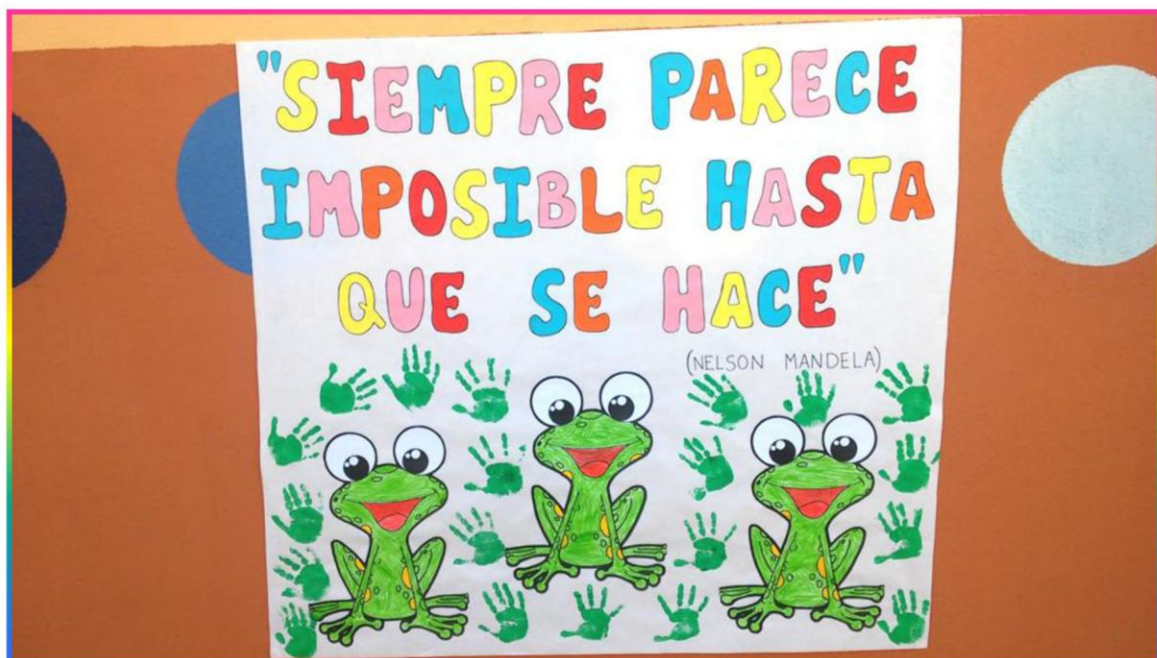 "SIEMPRE PARECE
IMPOSIBLE HASTA
QUE SE HACE"
(NELSON MANDELA)